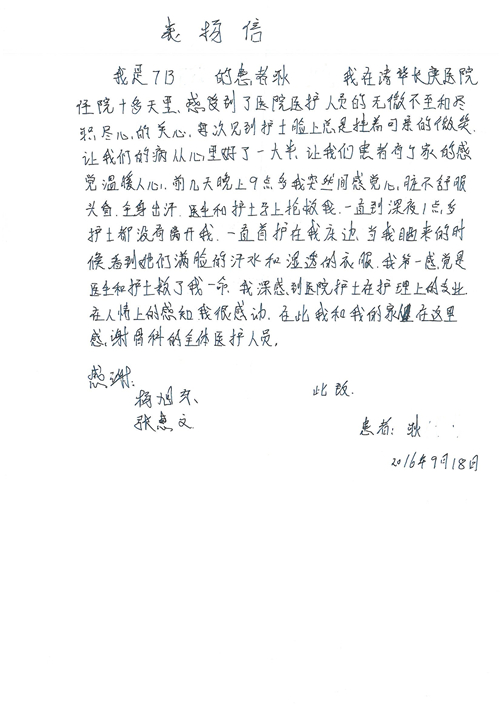 表扬信
我是713 的患者耿 我在清华长庚医院
住院十多天里、感受到了医院医护人员的无微不至和尽
职尽心、的关心,每次见到护士脸上总是挂着可亲的微笑
让我们的病从心里好了一大半、让我们患者有了家的感
觉温暖人心、前几天晚上9点多我突然间感觉心脏不舒服
头晕.全身出汗.医生和护士马上抢救我.一直到深夜1点多
护士都没有离开我.一直守护在我床边.当我醒来的时
候看到她们满脸的汗水和湿透的衣服、我第一感觉是
医生和护士救了我一命.我深感到医院护士在护理上的专业.
在人情上的感知我很感动.在此我和我的家 在这里
感谢骨科的全体医护人员.
感谢: 此致.
张惠文 患者:耿
2016年9月18日